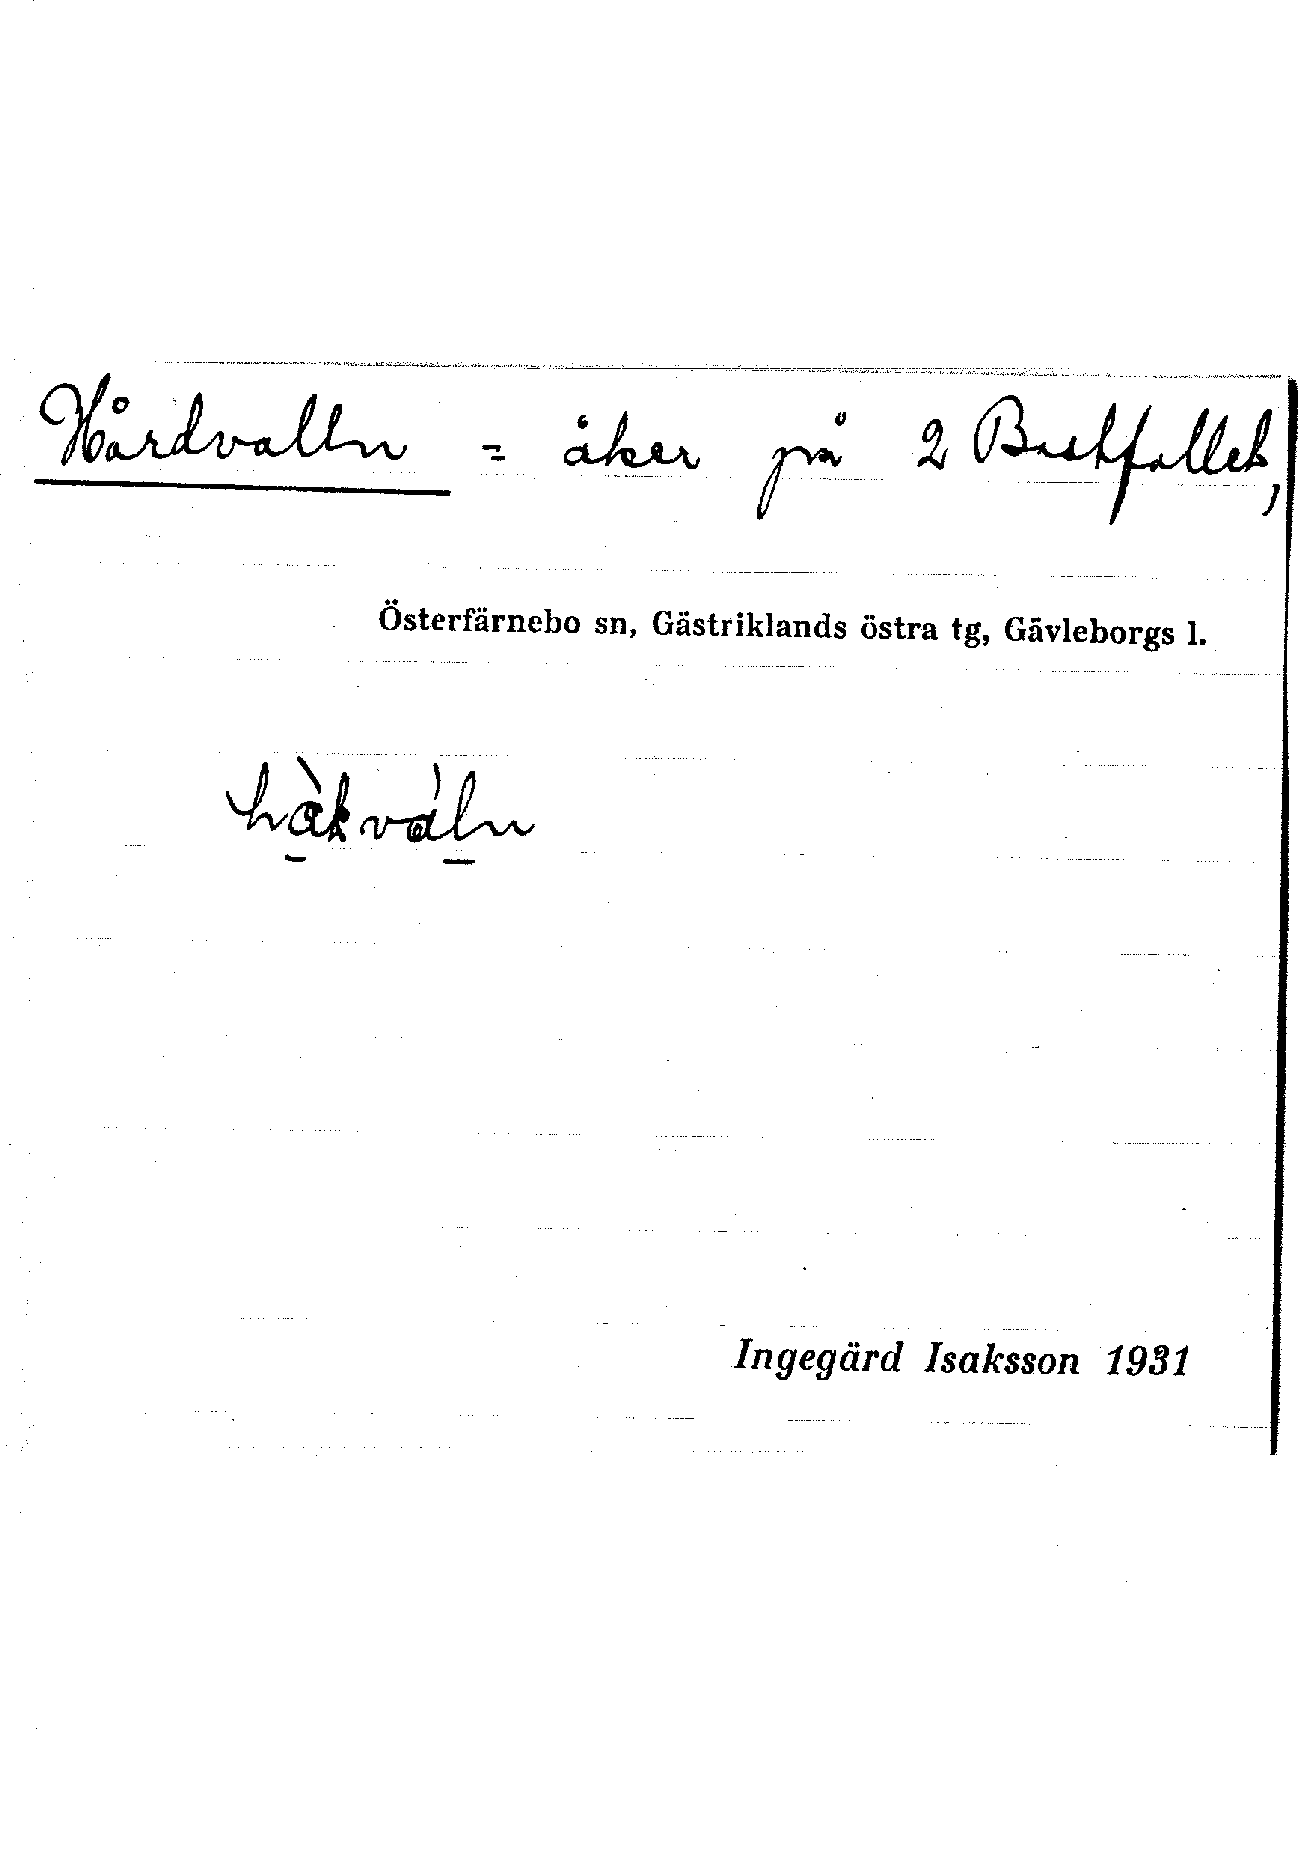 Hårdvalln = åker på 2 Bastfallet,
Österfärnebo sn, Gästriklands östra tg, Gävleborgs l.
Ingegärd Isaksson 1931